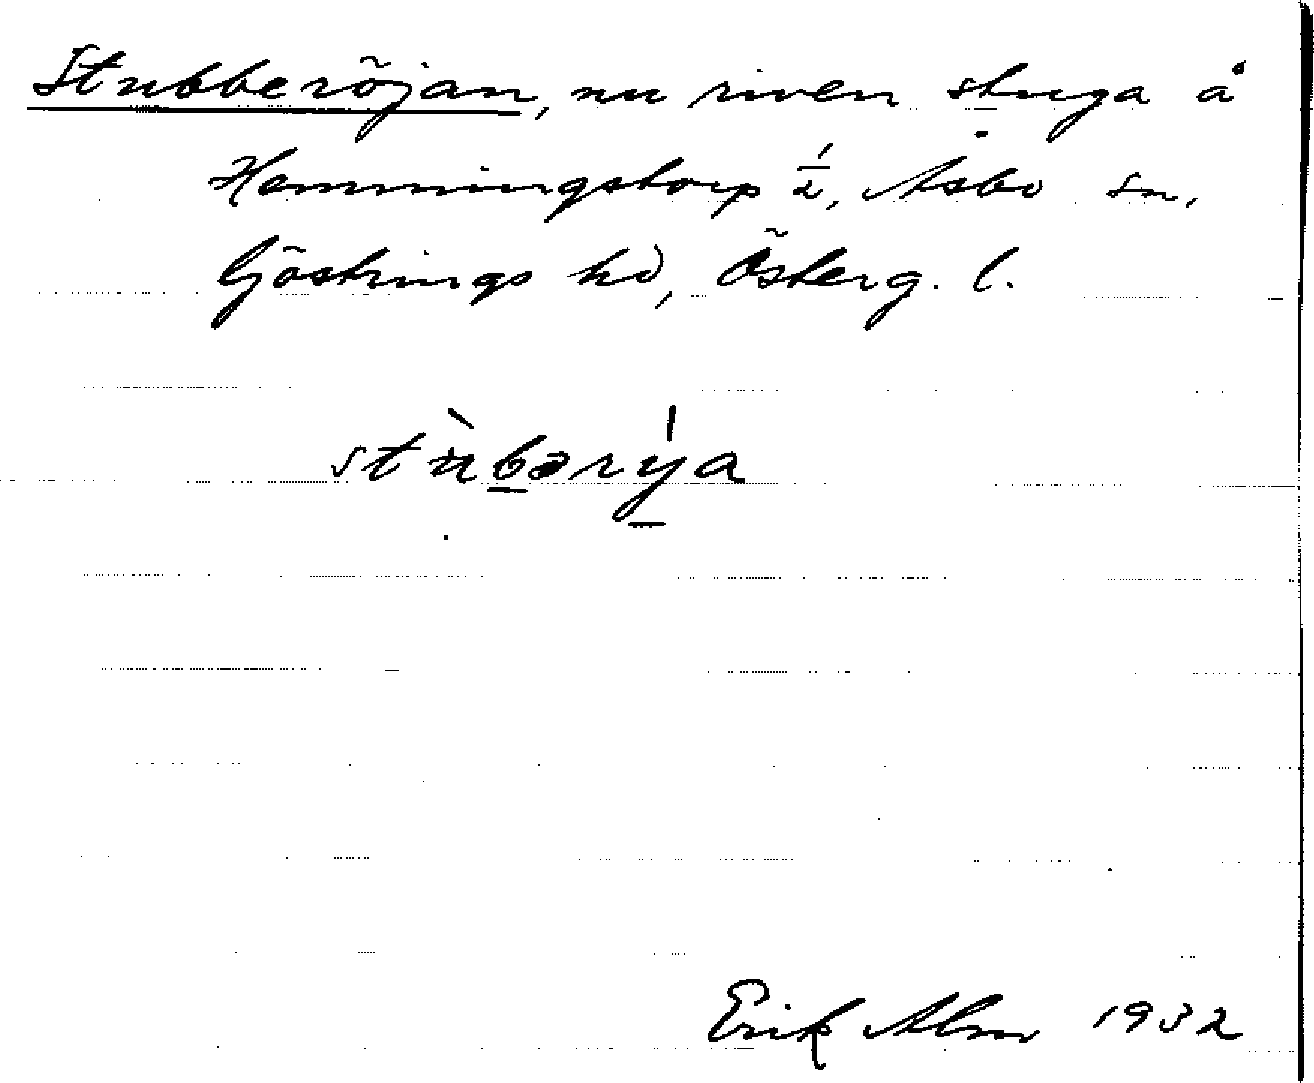 Stubberöjan, nu riven stuga å
Hemmingstorp ½, Åsbo sn,
Göstrings hd, Österg. l.
stùbərýa
Erik Alm 1932